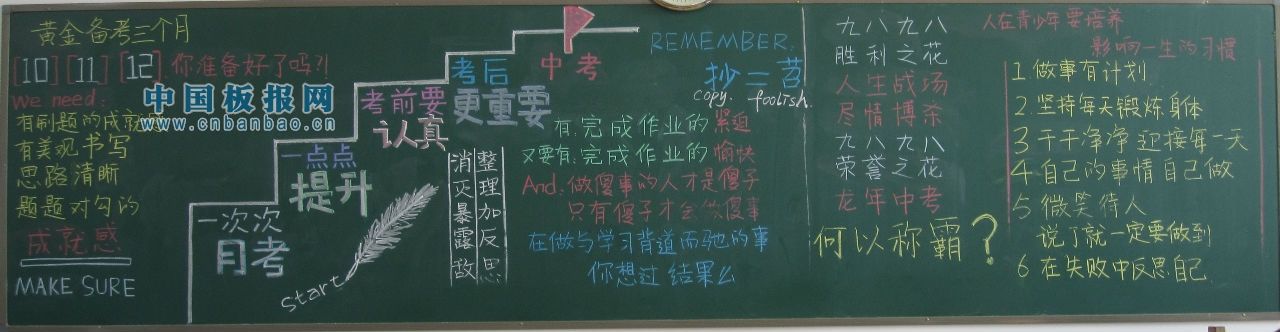 黄金备考三个月
[10] [11] [12] 你准备好了吗?!
We need:
有刷题的成就
有美观书写
思路清晰
题题对勾的
成就感
MAKE SURE
中国板报网
www.cnbanbao.cn
一次次
月考
一点点
提升
考前要
认真
考后
更重要
中考
start
消灭暴露敌
整理加反思
REMEMBER.
抄=苕
copy. foolish.
有.完成作业的紧迫
又要有.完成作业的愉快
And.做傻事的人才是傻子
只有傻子才会做傻事
在做与学习背道而驰的事
你想过结果么
九八九八
胜利之花
人生战场
尽情博杀
九八九八
荣誉之花
龙年中考
何以称霸?
人在青少年要培养
影响一生的习惯
1.做事有计划
2.坚持每天锻炼身体
3干干净净迎接每一天
4自己的事情自己做
5微笑待人
说了就一定要做到
6在失败中反思自己